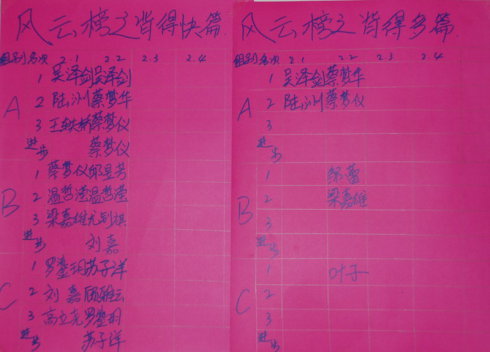 风云榜之背得快篇
组别 名次 2.1 2.2 2.3 2.4
A
1 吴泽剑 吴泽剑
2 陆 洲 蔡梦华
3 王 蔡梦仪
进步 蔡梦仪
B
1 蔡梦仪 邹
2 温哲滢 温哲滢
3 梁嘉雄
进步 刘嘉
C
1 罗 苏子洋
2 刘嘉 云
3 高立 罗
进步 苏子洋
风云榜之背得多篇
组别 名次 2.1 2.2 2.3 2.4
A
1 吴泽剑 蔡梦华
2 陆 洲 蔡梦仪
3
进步
B
1 邹
2 梁嘉雄
3
进步
C
1 叶子
2
3
进步